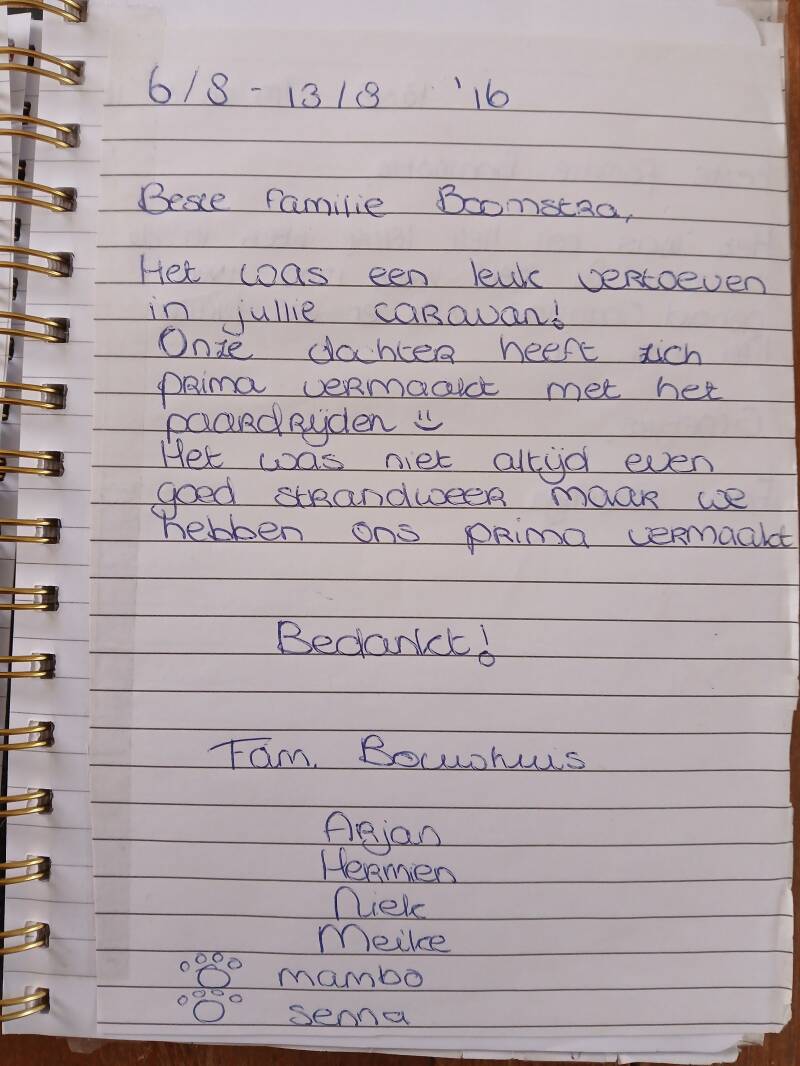 6/8 - 13/8 '16
Beste familie Boomstra,
Het was een leuk vertoeven
in jullie caravan!
Onze dochter heeft zich
prima vermaakt met het
paardrijden
Het was niet altijd even
goed strandweer maar we
hebben ons prima vermaakt
Bedankt!
Fam. Bouwhuis
Arjan
Hermien
Niek
Meike
mambo
senna